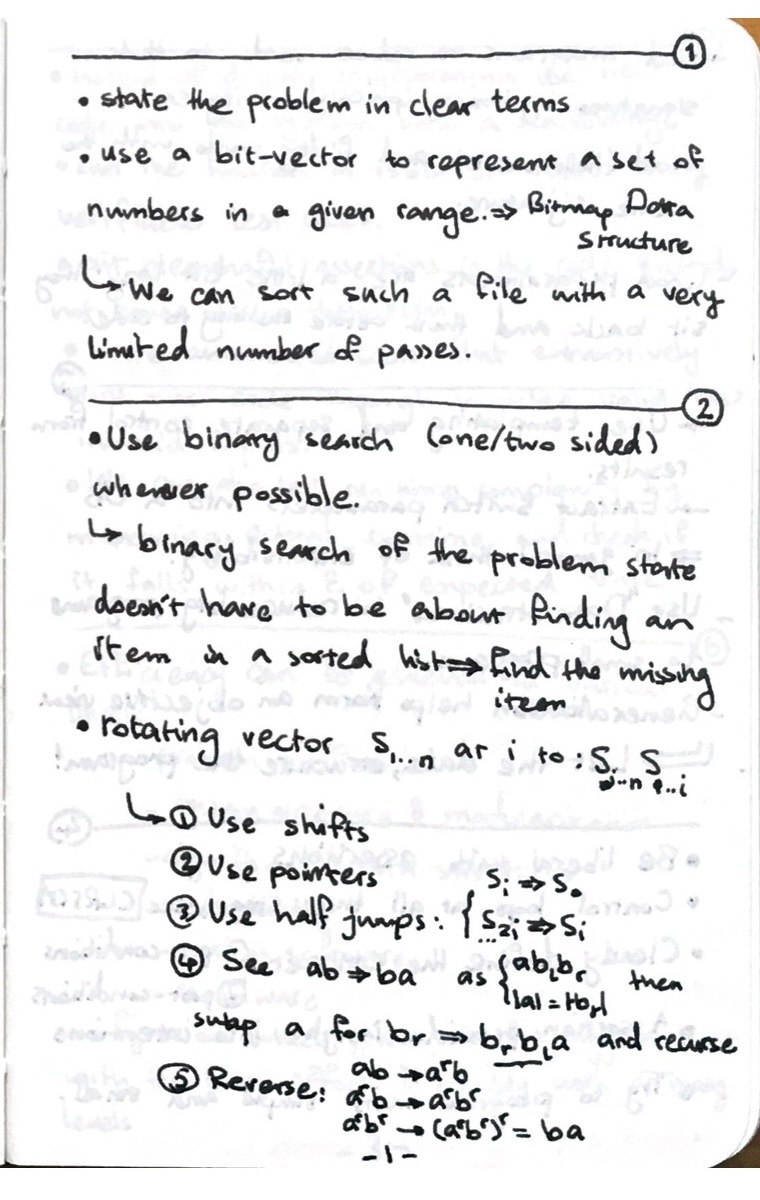 ①
• state the problem in clear terms
• use a bit-vector to represent a set of
numbers in a given range. ⇒ Bitmap Data
structure
↳ We can sort such a file with a very
limited number of passes.
②
• Use binary search (one/two sided)
wherever possible.
↳ binary search of the problem state
doesn't have to be about finding an
item in a sorted list ⇒ find the missing
item
• rotating vector S₁...n at i to: Sᵢ...n S₁...i
↳ ① Use shifts
② Use pointers
③ Use half jumps: { Sᵢ ⇒ S₀
S₂ᵢ ⇒ Sᵢ
...
④ See ab ⇒ ba as { ab_l b_r
|a| = |b_r| then
swap a for b_r ⇒ b_r b_l a and recurse
⑤ Reverse: ab → aʳb
aʳb → aʳbʳ
aʳbʳ → (aʳbʳ)ʳ = ba
-1-